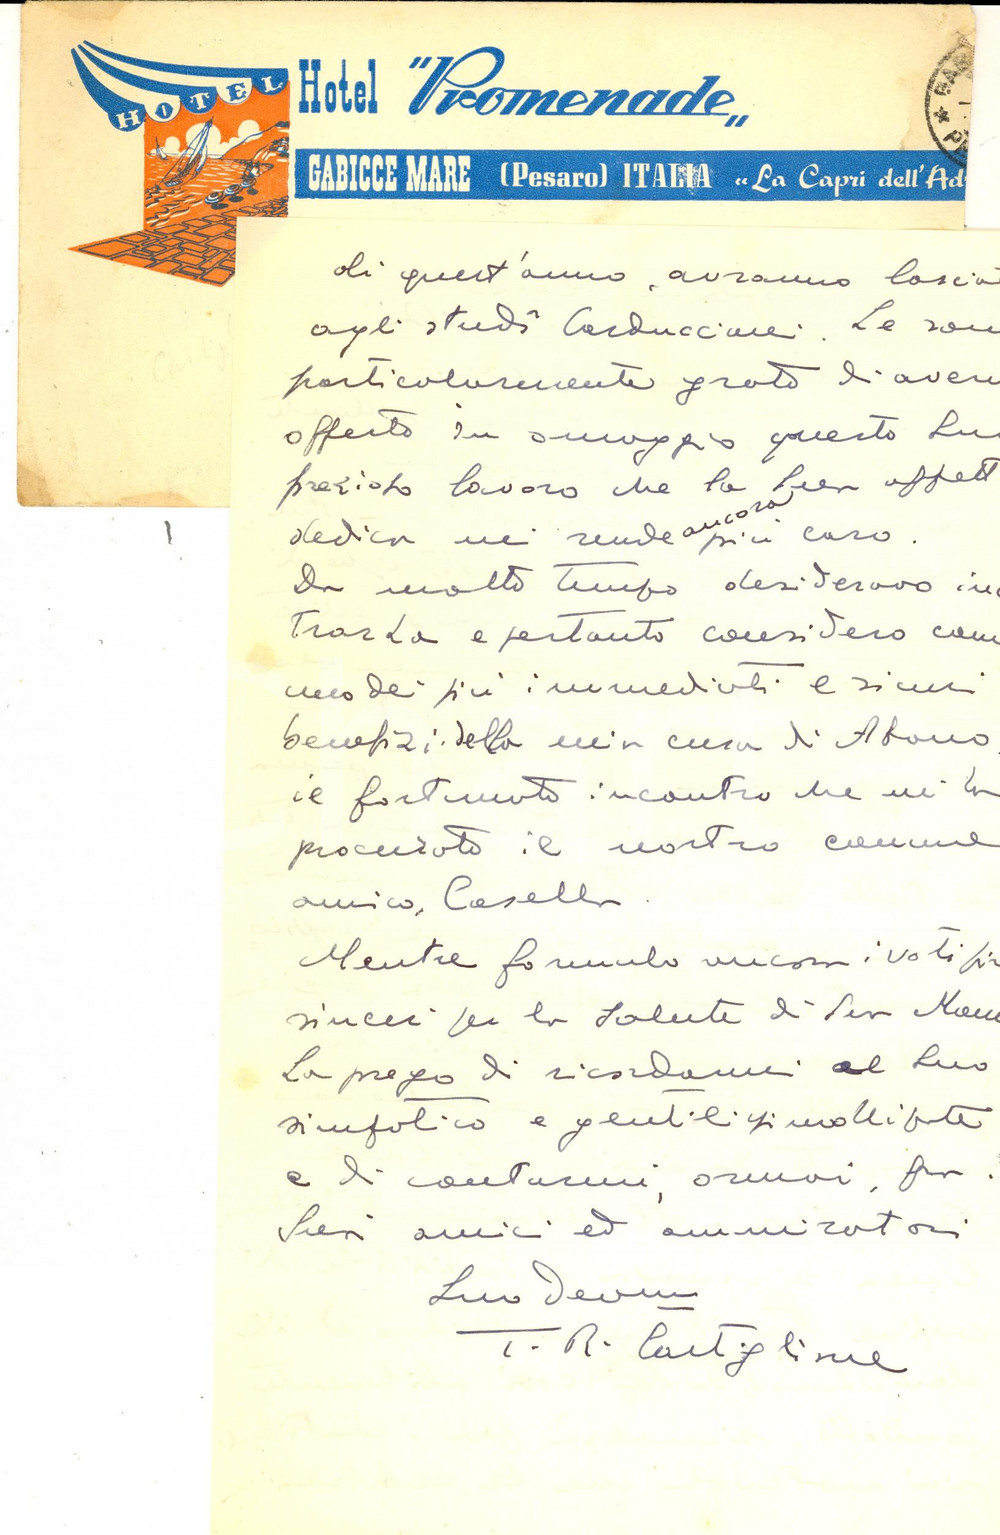 HOTEL
Hotel "Promenade„
GABICCE MARE (Pesaro) ITALIA «La Capri dell'Ad
di quest'anno, avranno lasciat
agli studi Carducciani. Le son
particolarmente grato di aver
offerto in omaggio questo Suo
prezioso lavoro che la Sua affett
dedica mi rende ancora più caro.
Da molto tempo desideravo inc
trarLa e pertanto considero com
uno dei più immediati e sicuri
benefizi della mia cura di Abano,
il fortunato incontro che mi ha
procurato il nostro comune
amico, Casella.
Mentre formulo ancora i voti più
sinceri per la salute di Sua Mam
La prego di ricordarmi al Suo
simpatico e gentilissimo
e di contarmi, ormai, fra i
Suoi amici ed ammiratori
Suo Devmo
T. R. Castiglione